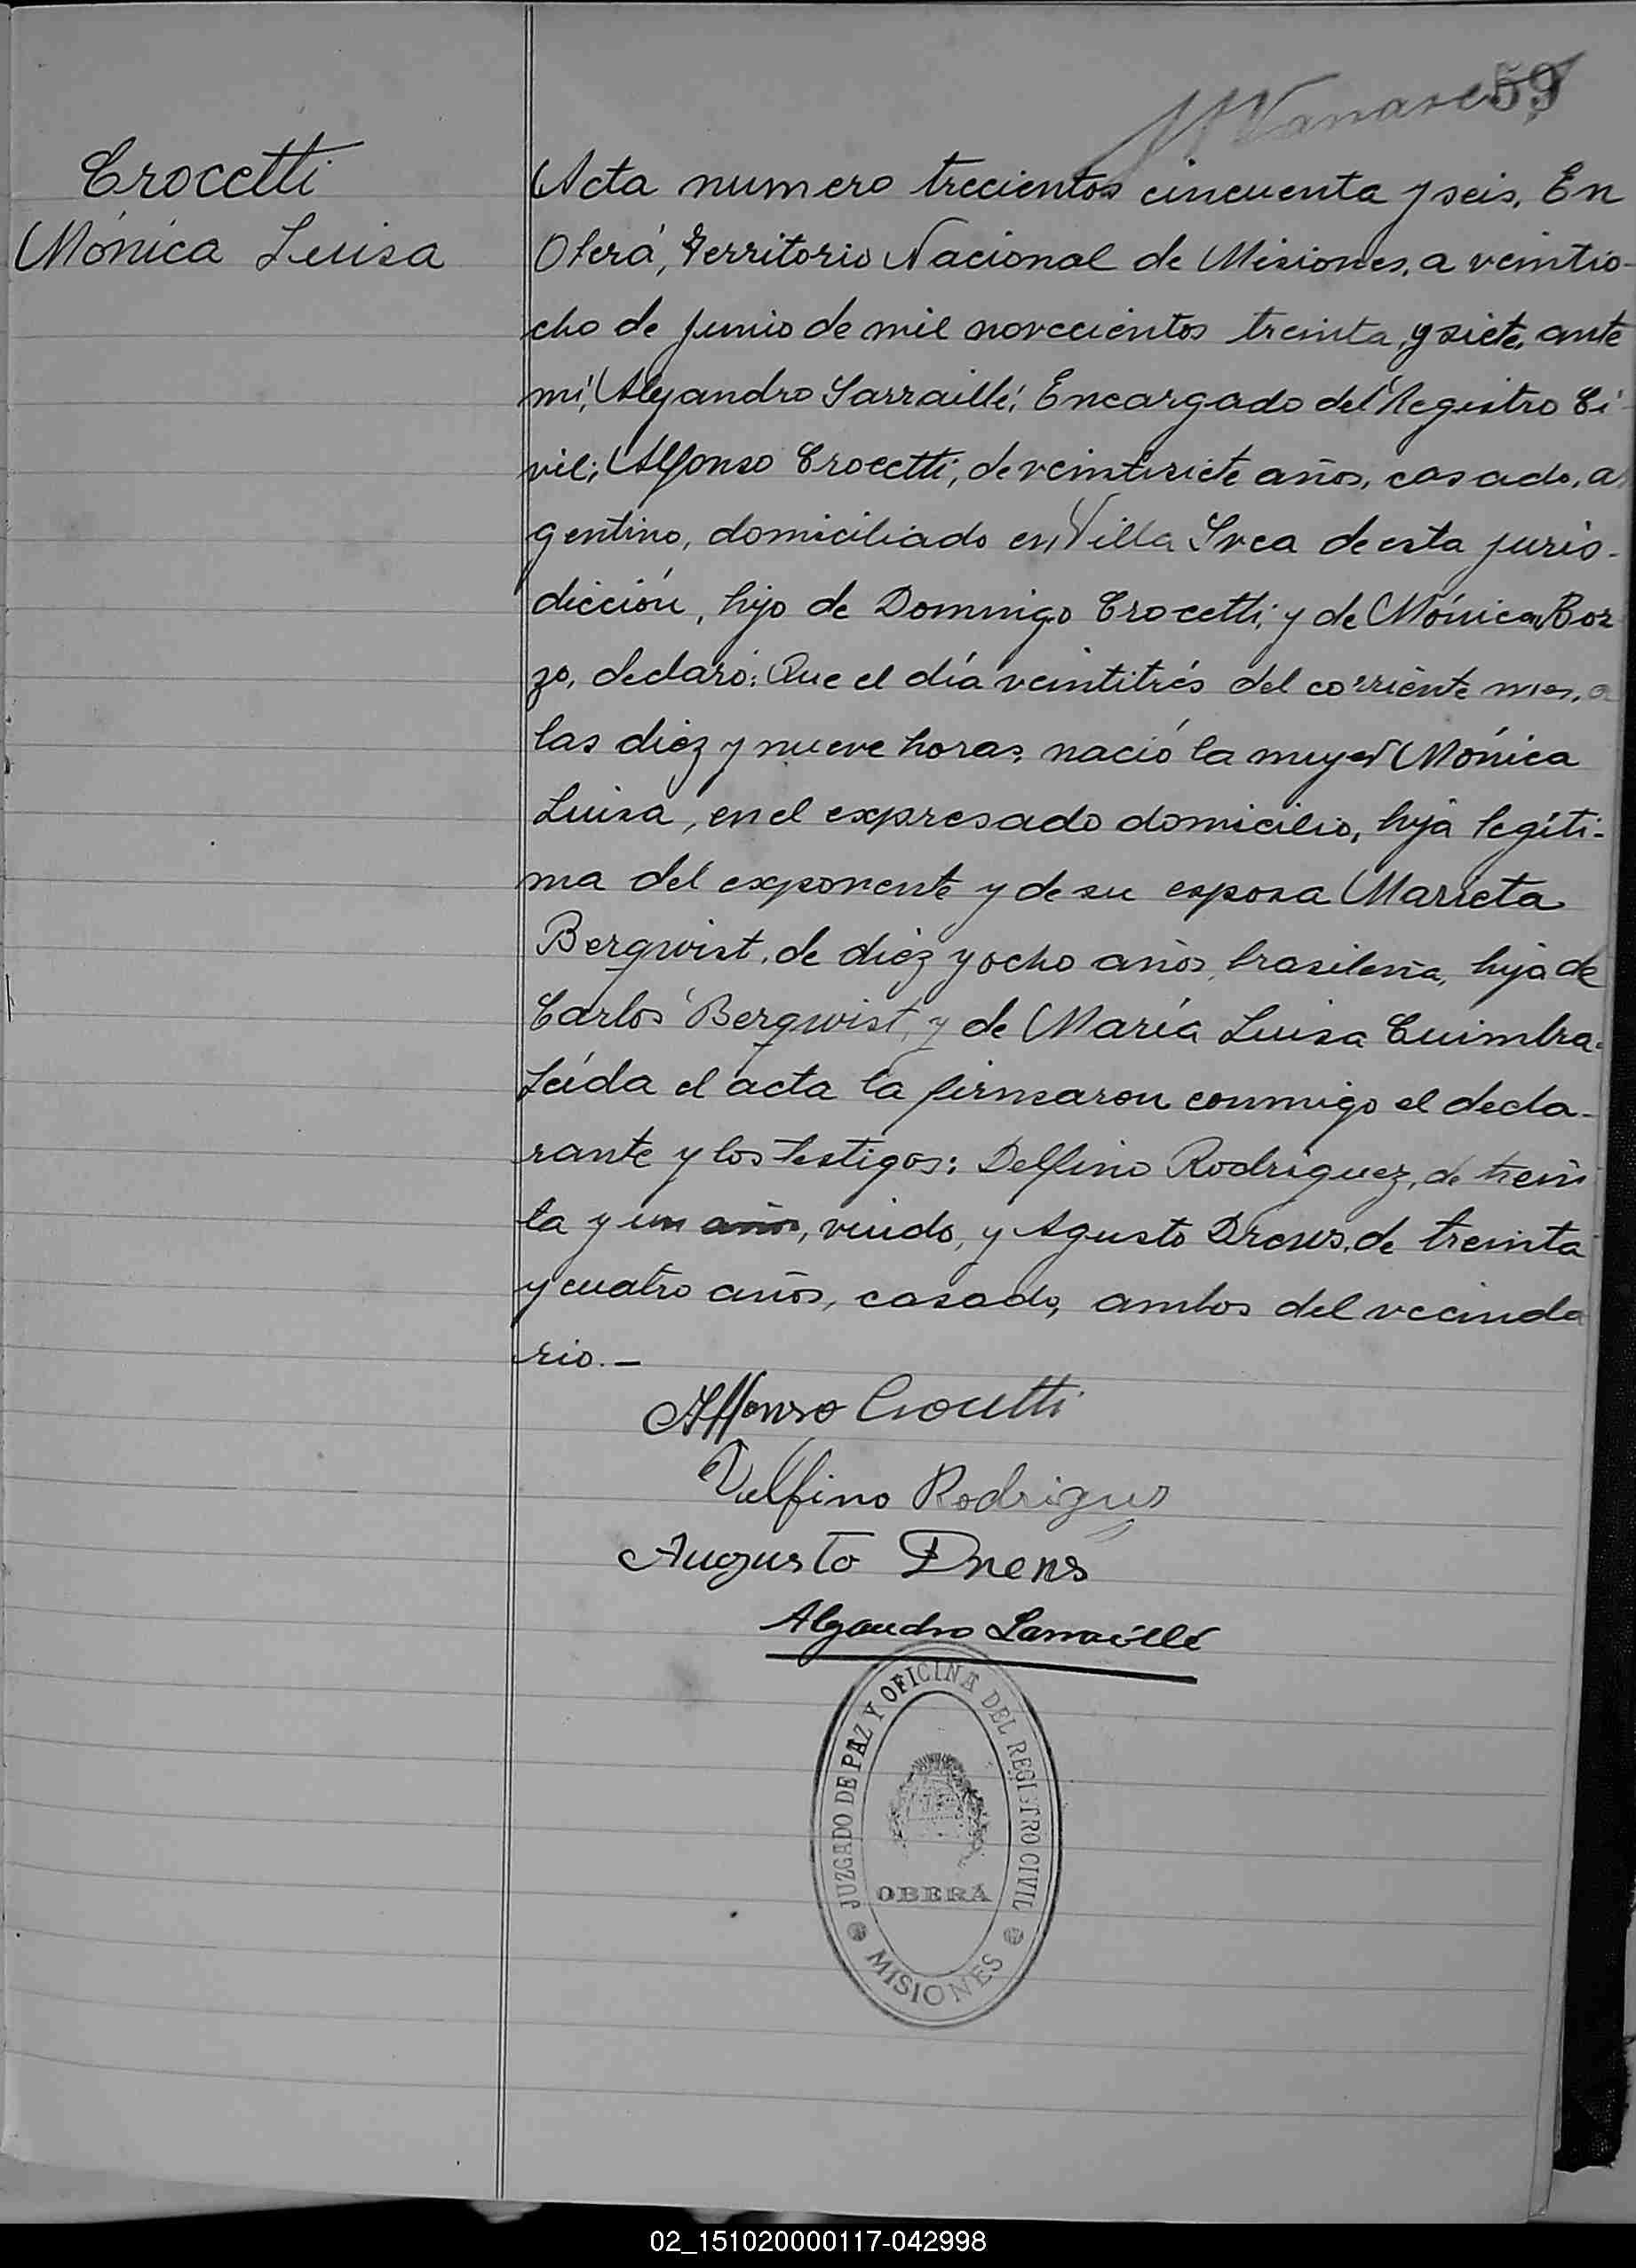 59
Crocetti
Mónica Luisa
Acta numero trecientos cincuenta y seis. En
Oberá, Territorio Nacional de Misiones, a veintio-
cho de junio de mil novecientos treinta y siete, ante
mí, Alejandro Sarraillé, Encargado del Registro Ci-
vil; Alfonso Crocetti, de veintisiete años, casado, ar
gentino, domiciliado en Villa Svea de esta juris-
dicción, hijo de Domingo Crocetti, y de Mónica Boz
zo, declaró: Que el día veintitrés del corriente mes, a
las diez y nueve horas, nació la mujer Mónica
Luisa, en el expresado domicilio, hija legíti-
ma del exponente y de su esposa Marieta
Bergwist, de diez y ocho años, brasileña, hija de
Carlos Bergwist, y de María Luisa Cuimbra.
Leída el acta la firmaron conmigo el decla-
rante y los testigos: Delfino Rodríguez, de trein
ta y un años, viudo, y Agusto Drews, de treinta
y cuatro años, casado, ambos del vecinda
rio.-
Alfonso Crocetti
Delfino Rodrigues
Augusto Drews
Alejandro Sarraillé
JUZGADO DE PAZ Y OFICINA DEL REGISTRO CIVIL
OBERÁ
MISIONES
02_151020000117-042998